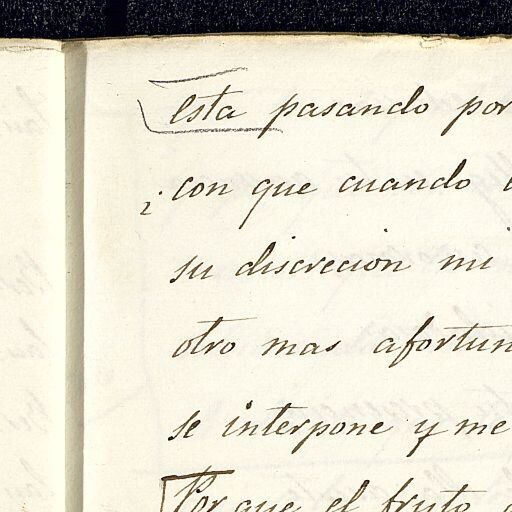 esta pasando por
¿con que cuando
su discrecion mi
otro mas afortun
se interpone y me
Porque el fruto